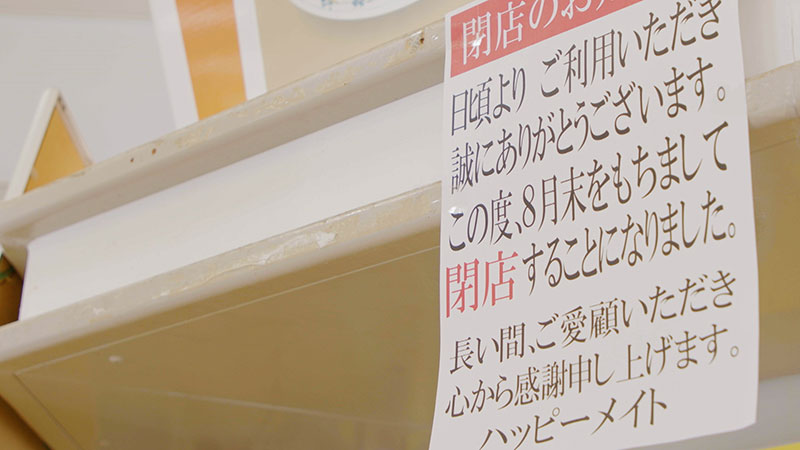 閉店のお知
日頃より ご利用いただき
誠にありがとうございます。
この度、8月末をもちまして
閉店することになりました。
長い間、ご愛顧いただき
心から感謝申し上げます。
ハッピーメイト